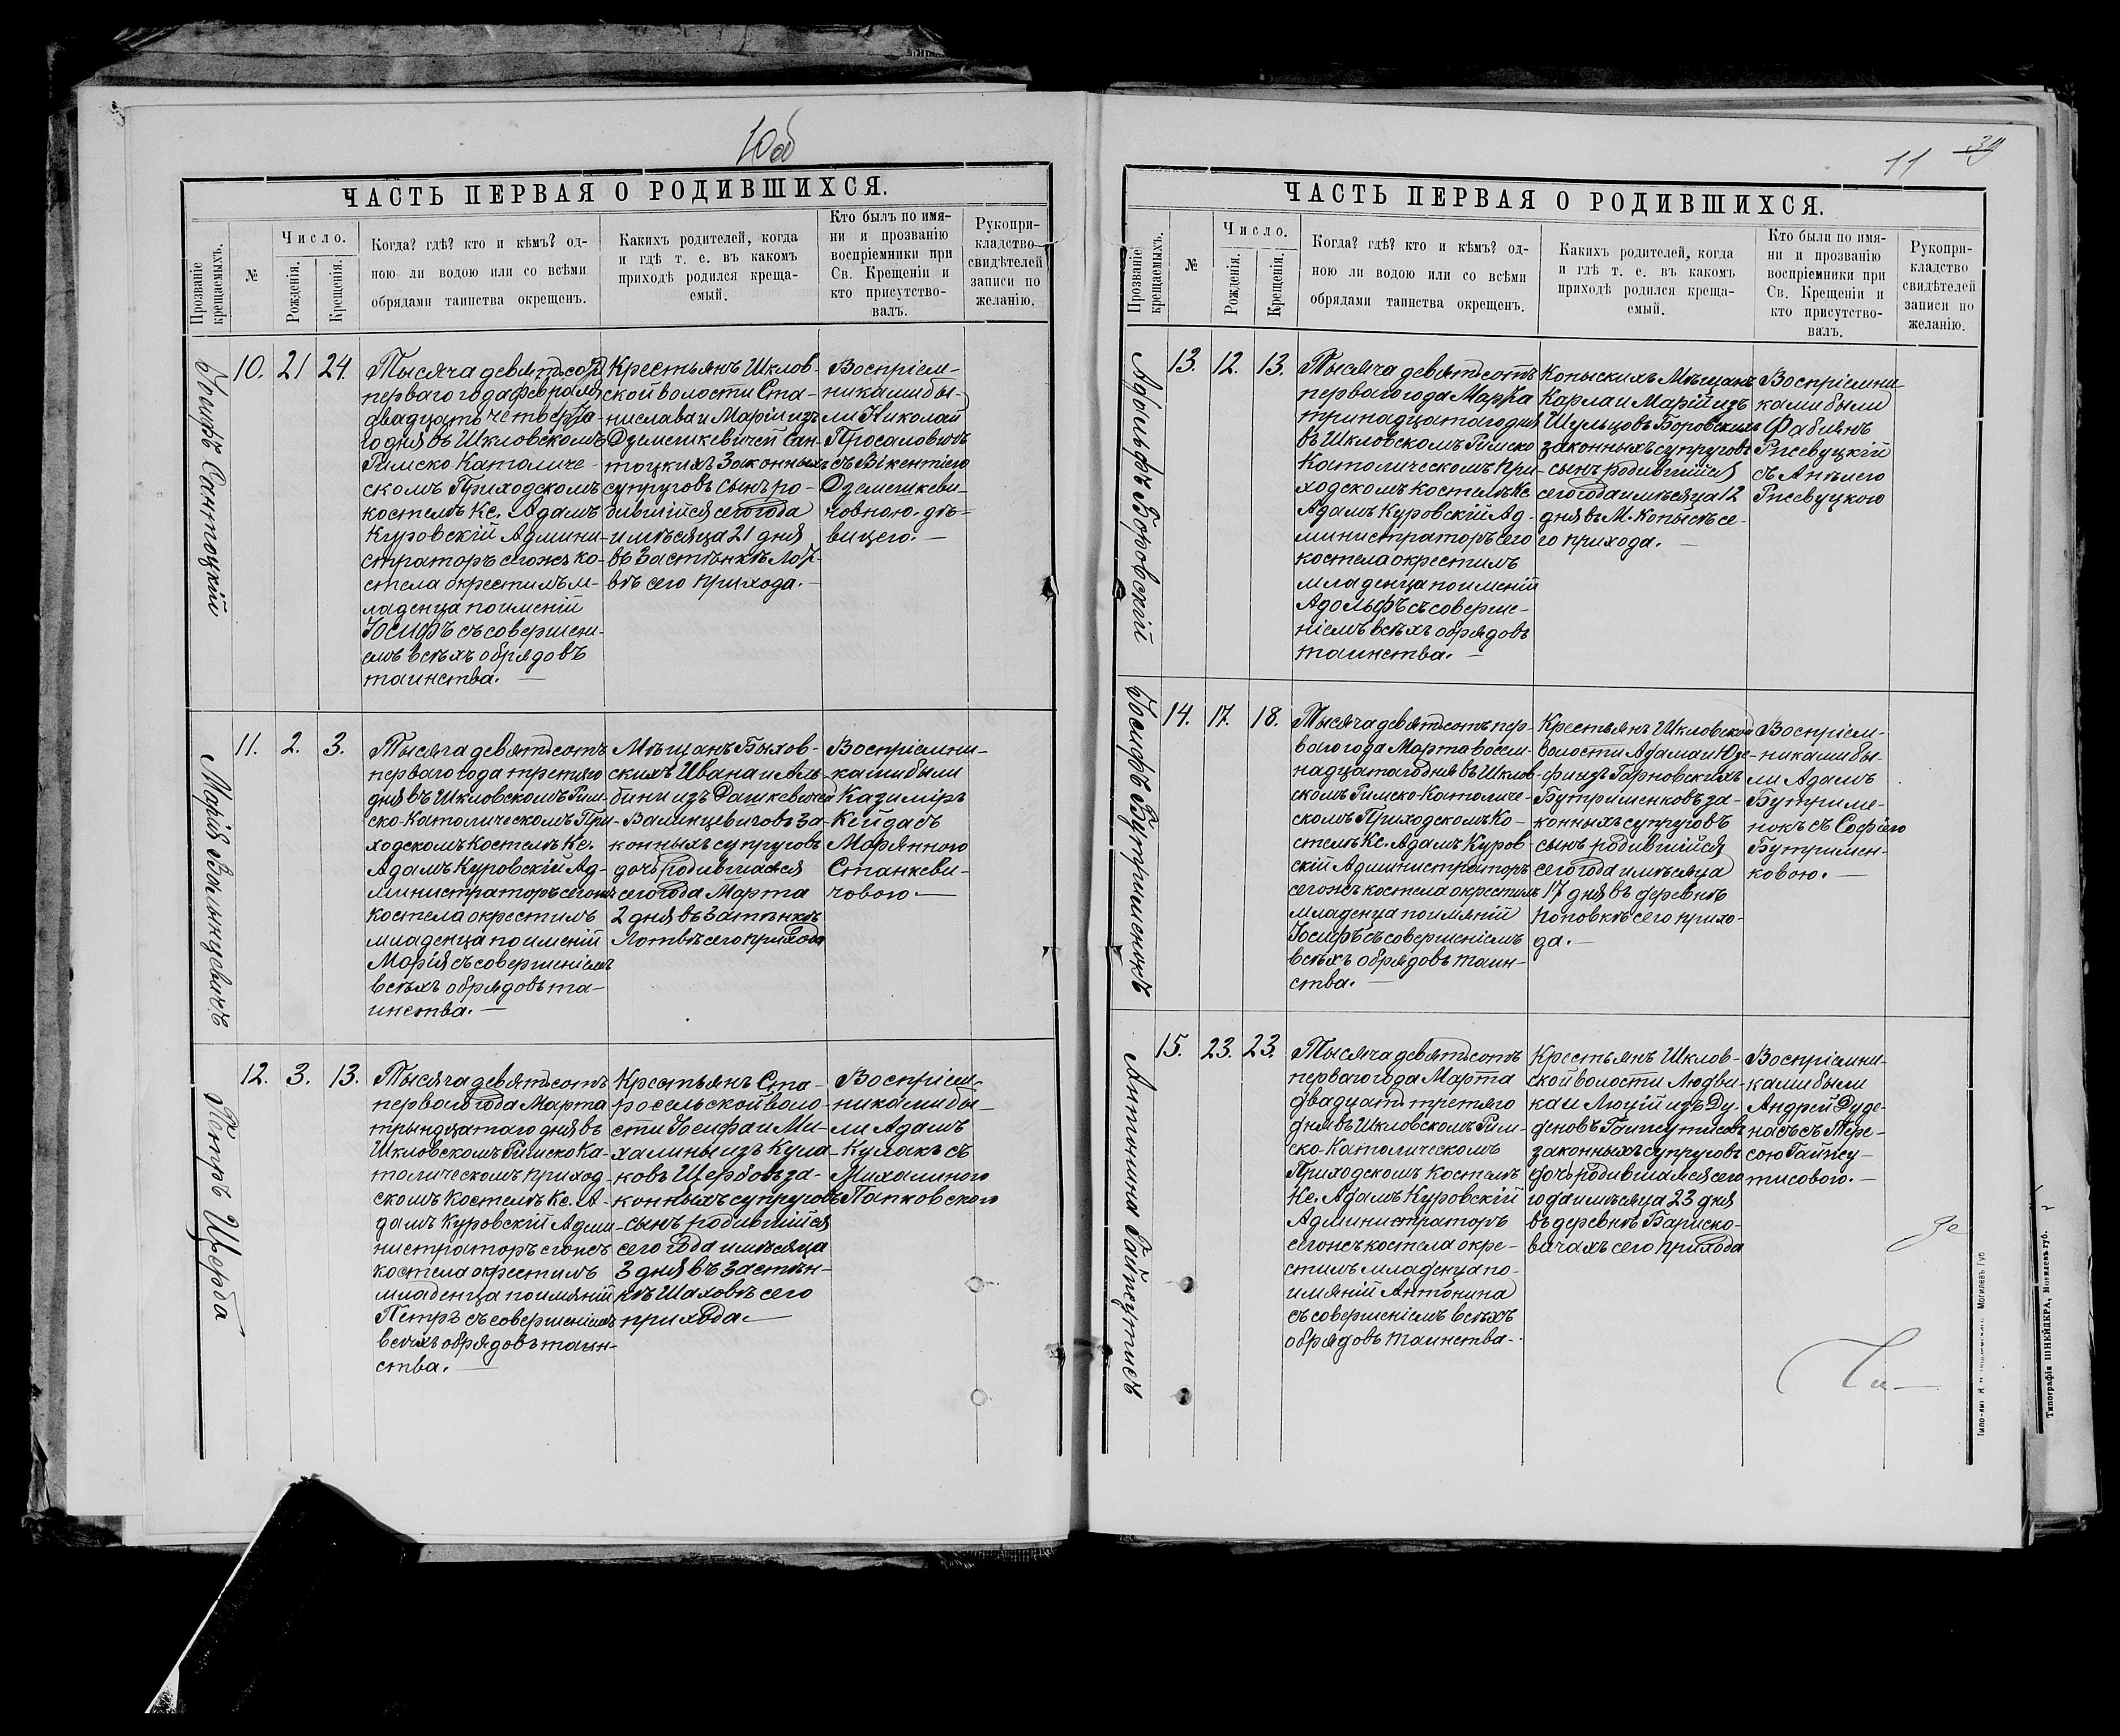 10об
ЧАСТЬ ПЕРВАЯ О РОДИВШИХСЯ.
Прозваніе крещаемыхъ.
№
Число.
Рожденія.
Крещенія.
Когда? гдѣ? кто и кѣмъ? од-
ною ли водою или со всѣми
обрядами таинства окрещенъ.
Какихъ родителей, когда
и гдѣ т. е. въ какомъ
приходѣ родился креща-
емый.
Кто былъ по имя-
ни и прозванію
воспріемники при
Св. Крещеніи и
кто присутство-
валъ.
Рукопри-
кладство
свидѣтелей
записи по
желанію.
Іосифъ Сантоцкій
10. 21 24.
Тысяча девятьсотъ
перваго года февраля
двадцать четверта-
го дня въ Шкловскомъ
Римско Католиче-
скомъ Приходскомъ
костелѣ Кс. Адамъ
Куровскій Админи-
страторъ сегожъ ко-
стела окрестилъ м-
ладенца по имени
Іосифъ съ совершені-
емъ всѣхъ обрядовъ
таинства. —
Крестьянъ Шклов-
ской волости Ста-
нислава и Маріи изъ
Дземешкевичей Сан-
тоцкихъ законныхъ
супруговъ сынъ ро-
дившійся сего года
и мѣсяца 21 дня
въ Застѣнкѣ Лот-
вѣ сего прихода. —
Воспріем-
никами бы-
ли Николай
Просаловичъ
съ Вікентіею
Дземешкеви-
човною дѣ-
вицею. —
Марія Валинцевичъ
11. 2. 3.
Тысяча девятьсотъ
перваго года третяго
дня въ Шкловскомъ Рим-
ско-Католическомъ При-
ходскомъ Костелѣ Кс.
Адамъ Куровскій Ад-
министраторъ сегожъ
костела окрестилъ
младенца по имени
Марія съ совершеніемъ
всѣхъ обрядовъ та-
инства. —
Мѣщанъ Быхов-
скихъ Ивана и Аль-
бины изъ Дашкевичей
Валинцевичовъ за-
конныхъ супруговъ
дочь родившаяся
сего года Марта
2 дня въ Затѣнкѣ
Лотвѣ сего прихода
Воспріемни-
ками были
Казиміръ
Кейда съ
Марянною
Станкеви-
човою —
Петръ Щерба
12. 3. 13.
Тысяча девятьсотъ
перваго года Марта
трындцатаго дня въ
Шкловскомъ Римско Ка-
толическомъ приход-
скомъ Костелѣ Кс. А-
дамъ Куровскій Адми-
нистраторъ сегожъ
костела окрестилъ
младенца по имяній
Петръ съ совершеніемъ
всѣхъ обрядовъ таин-
ства. —
Крестьянъ Ста-
росельской воло-
сти Іосифа и Ми-
халины изъ Кула-
ковъ Щербовъ за-
конныхъ супруговъ
сынъ родившійся
сего года и мѣсяца
3 дня въ Застѣн-
кѣ Шаховѣ сего
прихода —
Воспріем-
никами бы-
ли Адамъ
Кулакъ съ
Михалиною
Папковскою
11 39
ЧАСТЬ ПЕРВАЯ О РОДИВШИХСЯ.
Прозваніе крещаемыхъ.
№
Число.
Рожденія.
Крещенія.
Когда? гдѣ? кто и кѣмъ? од-
ною ли водою или со всѣми
обрядами таинства окрещенъ.
Какихъ родителей, когда
и гдѣ т. е. въ какомъ
приходѣ родился креща-
емый.
Кто были по имя-
ни и прозванію
воспріемники при
Св. Крещеніи и
кто присутство-
валъ.
Рукопри-
кладство
свидѣтелей
записи по
желанію.
Адольфъ Боровскій
13. 12. 13.
Тысяча девятьсотъ
перваго года Марта
тринадцатаго дня
въ Шкловскомъ Римско
Католическомъ При-
ходскомъ костелѣ Кс.
Адамъ Куровскій Ад-
министраторъ сего
костела окрестилъ
младенца по имений
Адольфъ съ соверше-
ніемъ всѣхъ обрядовъ
таинства. —
Копыскихъ Мѣщанъ
Карла и Марій изъ
Шульцовъ Боровскихъ
законныхъ супруговъ
сынъ родившійся
сего года и мѣсяца 12
дня въ М. Копысѣ се-
го прихода. —
Воспріемни-
ками были
Фабіянъ
Ржевуцкій
съ Анѣлею
Ржевуцкою
Іосифъ Бутрименокъ
14. 17. 18.
Тысяча девятьсотъ пер-
ваго года Марта восем-
надцатаго дня въ Шклов-
скомъ Римско-Католиче-
скомъ Приходскомъ Ко-
стелѣ Кс. Адамъ Куров-
скій Администраторъ
сегожъ костела окрестилъ
младенца по имяній
Іосифъ съ совершеніемъ
всѣхъ обрядовъ таин-
ства. —
Крестьянъ Шкловской
волости Адама и Юзе-
фи изъ Тарновскихъ
Бутрименковъ за-
конныхъ супруговъ
сынъ родившійся
сего года и мѣсяца
17 дня въ деревнѣ
Поповкѣ сего прихо-
да. —
Воспріем-
никами бы-
ли Адамъ
Бутриме-
нокъ съ Софіею
Бутримен-
ковою. —
Антонина Гайжутисъ
15. 23. 23.
Тысяча девятьсотъ
перваго года Марта
двадцать третяго
дня въ Шкловскомъ Рим-
ско-Католическомъ
Приходскомъ Костелѣ
Кс. Адамъ Куровскій
Администраторъ
сегожъ костела окре-
стилъ младенца по
имяній Антонина
съ совершеніемъ всѣхъ
обрядовъ таинства.
Крестьянъ Шклов-
ской волости Людви-
ка и Люцій изъ Ду-
деновъ Гайжутисовъ
законныхъ супруговъ
дочь родившаяся сего
года и мѣсяца 23 дня
въ деревнѣ Барско-
вичахъ сего прихода
Воспріемни-
ками были
Андрей Дуде-
насъ съ Тере-
сою Гайжу-
тисовою. —
Типографія ШНЕЙДЕРА, Могилевъ губ.